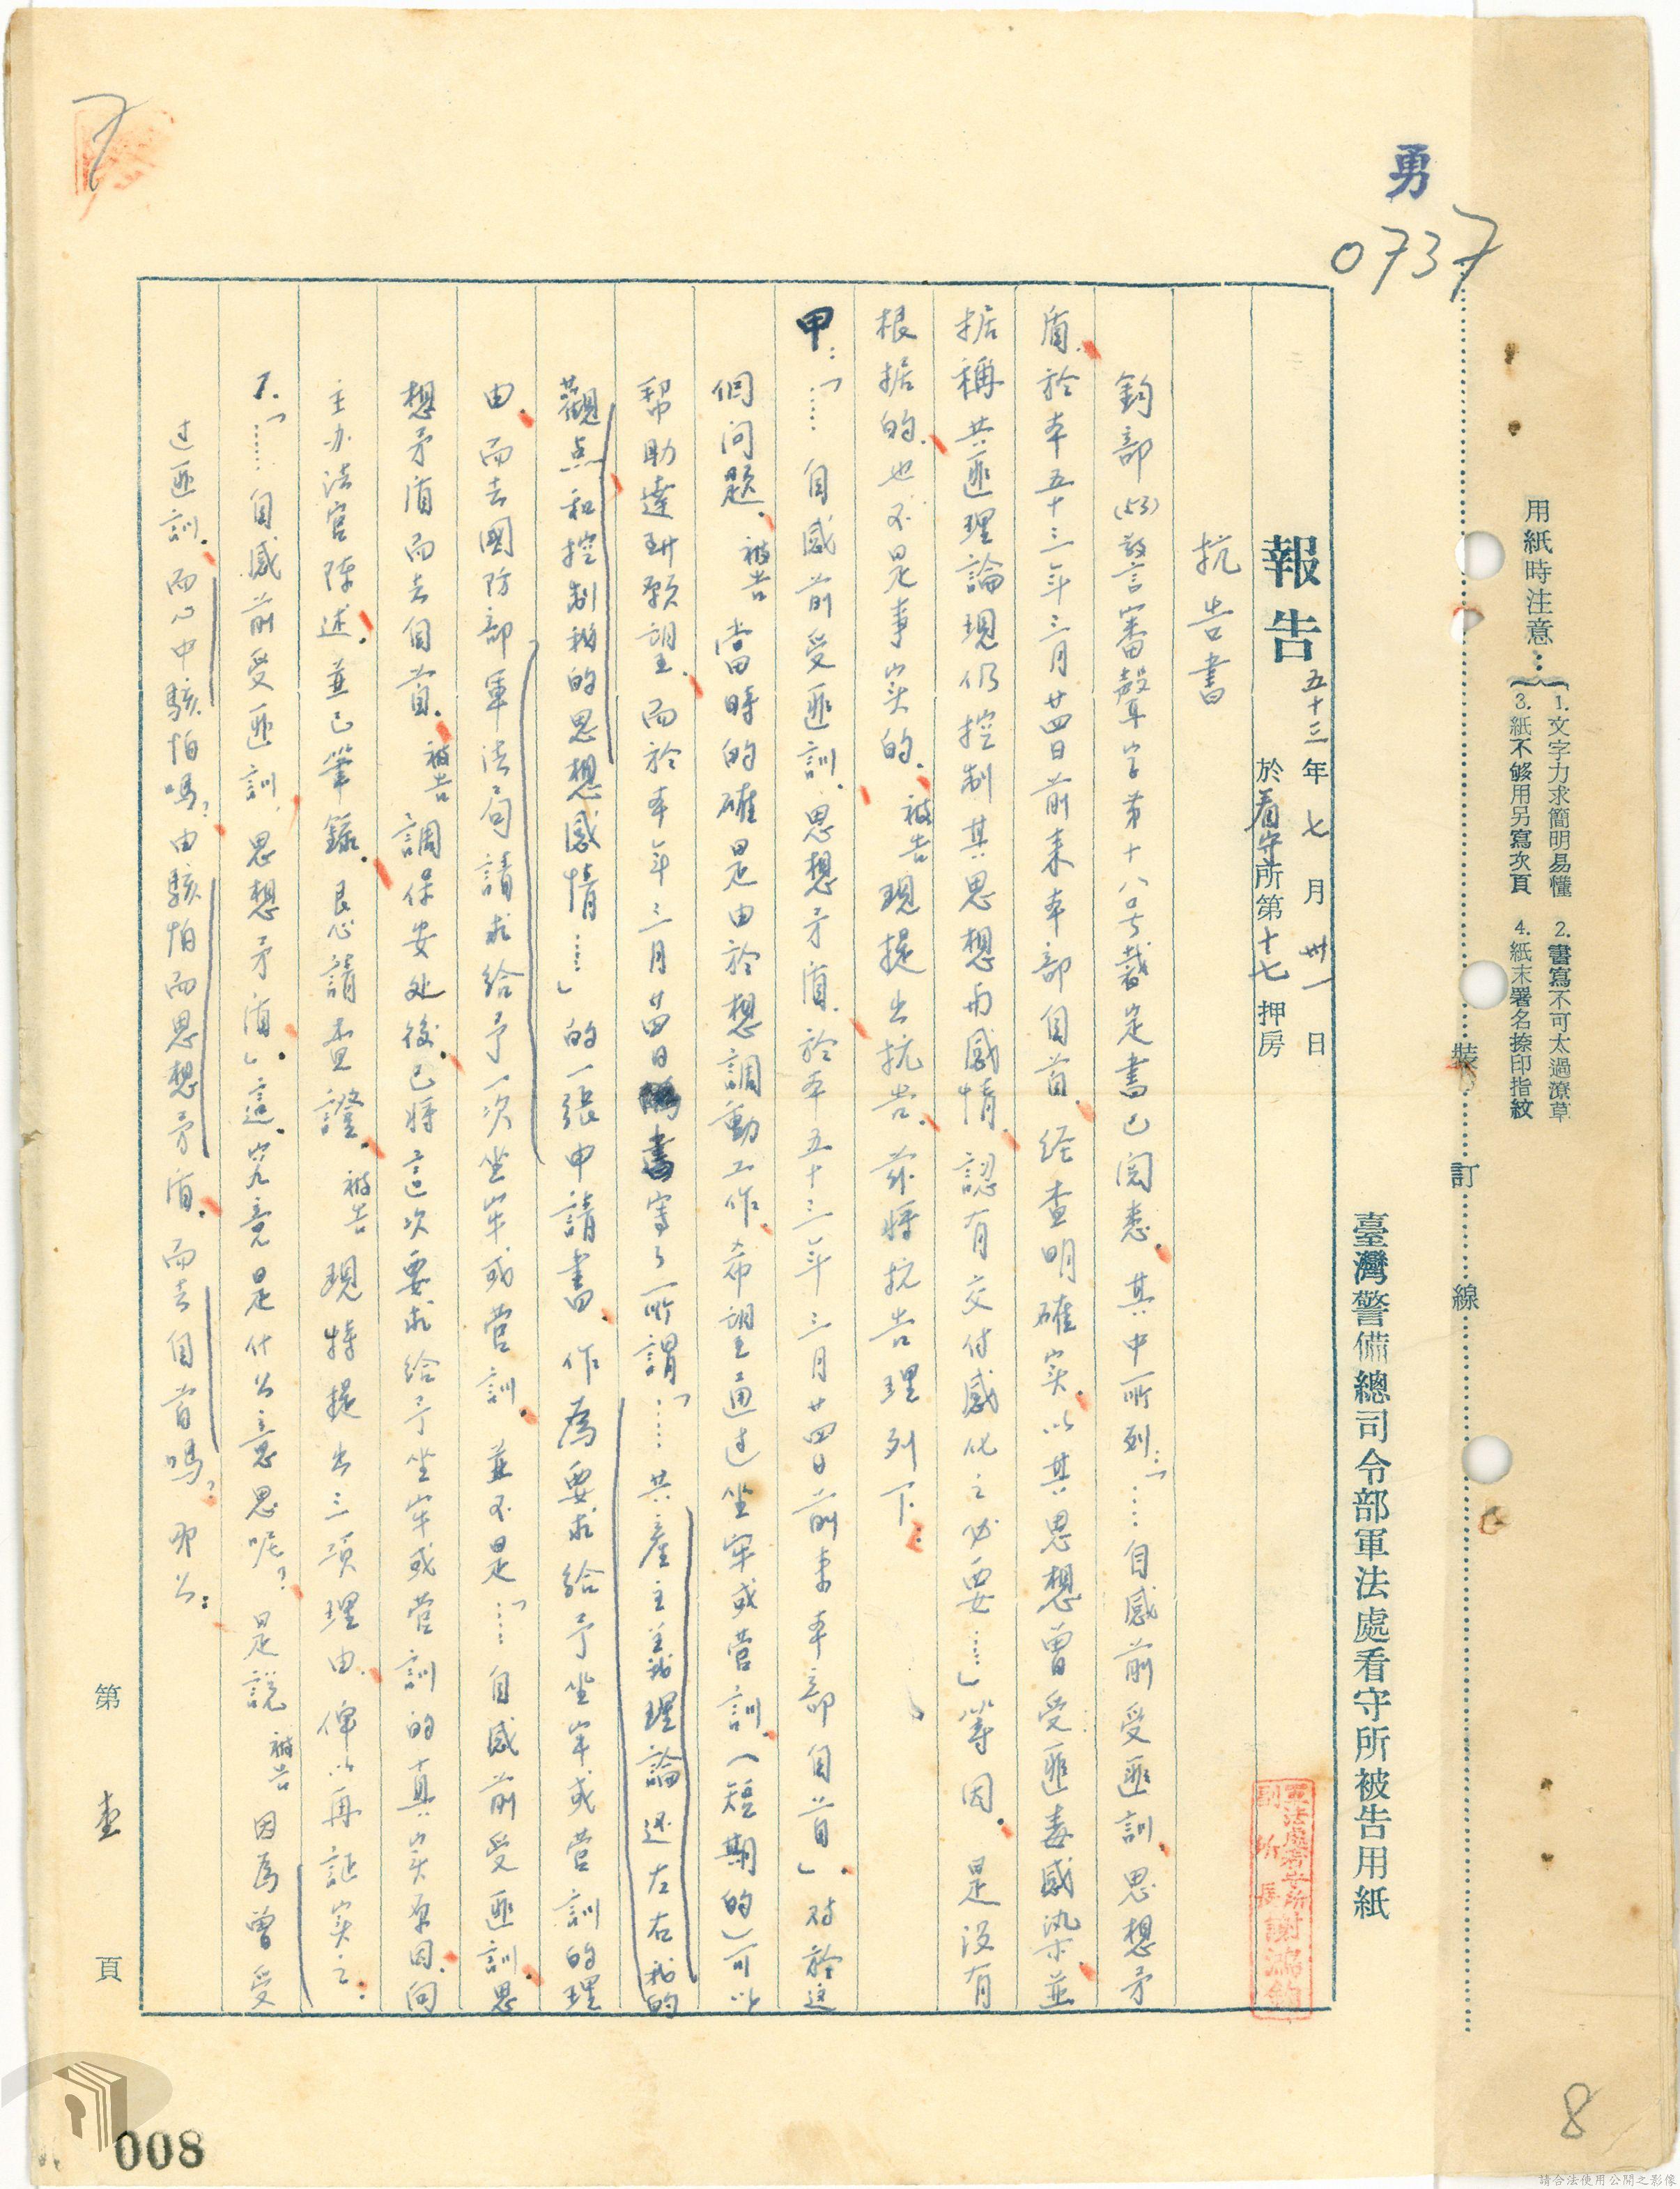 勇
0737
用紙時注意：
1. 文字力求簡明易懂
2. 書寫不可太過潦草
3. 紙不够用另寫次頁
4. 紙末署名捺印指紋
裝訂線
臺灣警備總司令部軍法處看守所被告用紙
報告 五十三年七月卅一日
於看守所第十七押房
軍法處看守所
副所長謝鴻鈞
抗告書
鈞部(53)警審聲字第十八号裁定書已閱悉。其中所列：「……自感前受匪訓，思想矛
盾，於本五十三年三月廿四日前來本部自首，经查明確实，以其思想曾受匪毒感染，並
据稱共匪理論現仍控制其思想與感情，認有交付感化之必要……」等因。是没有
根据的，也不是事实的，被告現提出抗告，茲將抗告理列下：
甲：「……自感前受匪訓，思想矛盾，於本五十三年三月廿四日前來本部自首」对於这
個问題，被告當時的確是由於想調動工作，希望通过坐牢或管訓，（短期的）可以
帮助達到願望，而於本年三月廿四日書寫了所謂「……共產主義理論还左右我的
觀点和控制我的思想感情……」的一張申請書，作為要求給予坐牢或管訓的理
由，而去國防部軍法局請求給予一次坐牢或管訓，並不是「……自感前受匪訓，思
想矛盾而去自首，被告調保安处後，已將這次要求給予坐牢或管訓的真实原因，向
主办法官陳述，並已筆錄，懇請查證，被告現特提出三項理由，俾以再証实之：
1.「……自感前受匪訓，思想矛盾」，這究竟是什么意思呢？是說被告因為曾受
过匪訓，而心中駭怕嗎？由駭怕而思想矛盾，而去自首嗎？那么：
第壹頁
7
8
008
請合法使用公開之影像